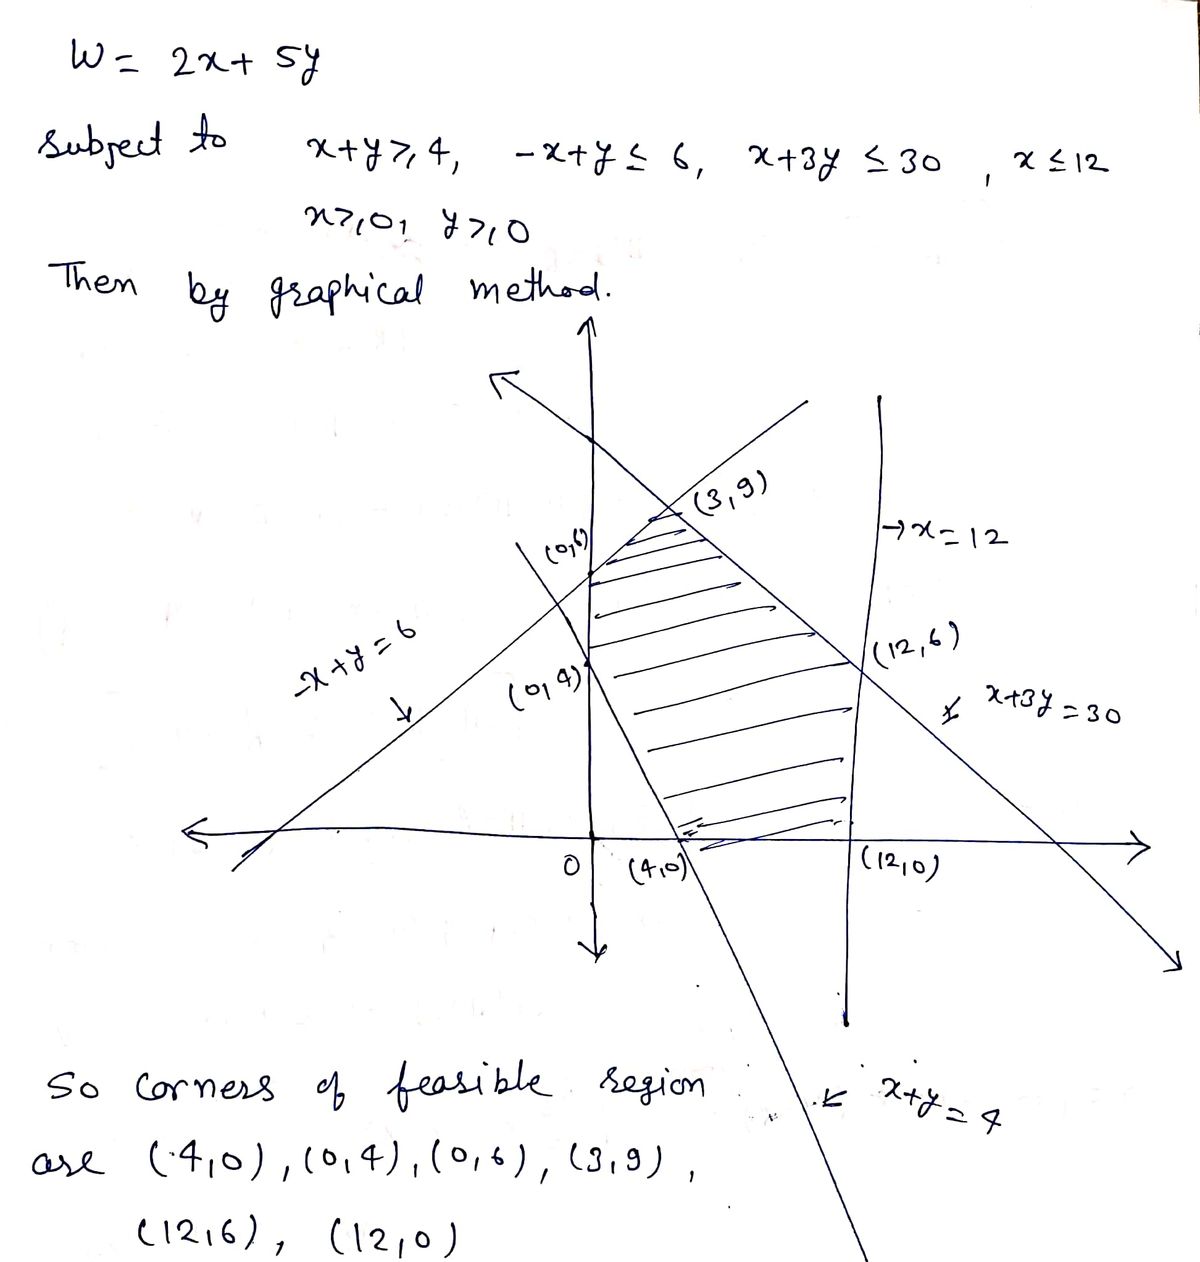 W = 2x + 5y
subject to x+y ≥ 4, -x+y ≤ 6, x+3y ≤ 30, x ≤ 12
x ≥ 0, y ≥ 0
Then by graphical method.
(3,9)
(0,6)
→ x = 12
-x+y = 6
(12,6)
(0,4)
x+3y = 30
0
(4,0)
(12,0)
So corners of feasible region
x+y = 4
are (4,0), (0,4), (0,6), (3,9),
(12,6), (12,0)